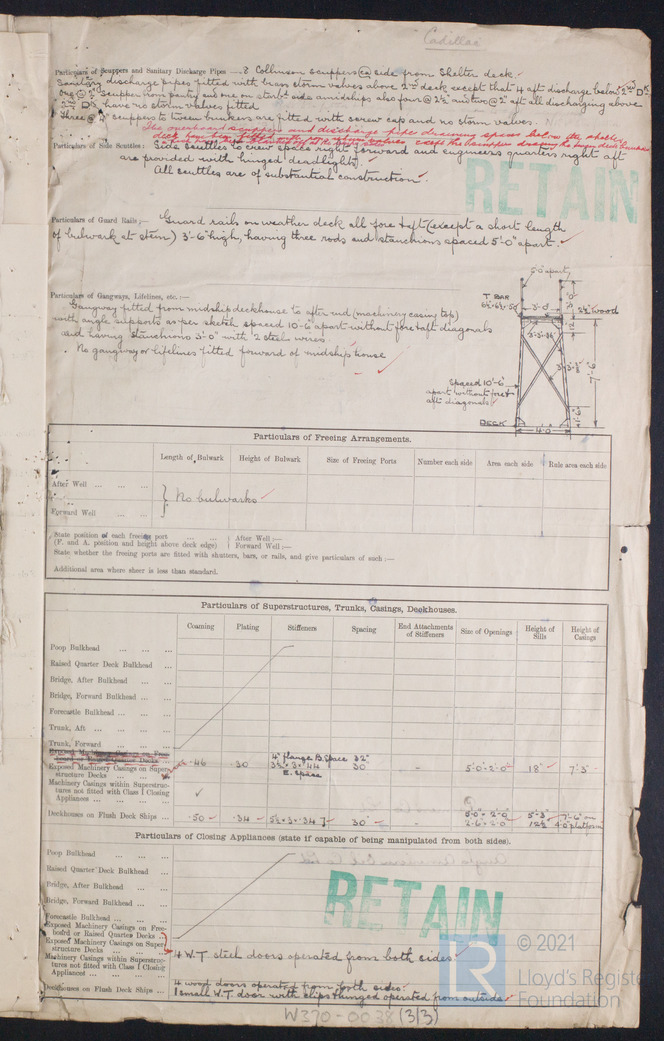 Cadillac
Particulars of Scuppers and Sanitary Discharge Pipes — 8 Collinson scuppers ea side from Shelter deck.
Sanitary discharge pipes fitted with brass storm valves above 2nd deck except that 4 aft discharge below 2nd Dk.
One @ 2" scupper from pantry and one on starbd side amidships also four @ 2½" and two @ 2" aft all discharging above
2nd Dk have no storm valves fitted
Three @ 4" scuppers to tween bunkers are fitted with screw cap and no storm valves.
The overboard scuppers and discharge pipes draining spaces below the shelter
deck
Particulars of Side Scuttles: Side scuttles to crew space right forward and engineers quarters right aft
are provided with hinged deadlights.
All scuttles are of substantial construction.
RETAIN
Particulars of Guard Rails;— Guard rails on weather deck all fore & aft (except a short length
of bulwark at stem) 3'-6" high, having three rods and stanchions spaced 5'-0" apart.
Particulars of Gangways, Lifelines, etc. :—
Gangway fitted from midship deckhouse to after end (machinery casing top)
with angle supports as per sketch spaced 10'-6" apart without fore & aft diagonals
and having stanchions 3'-0" with 2 steel wires.
No gangway or lifelines fitted forward of midship house
5'-0" apart
T BAR
3'-0"
2½" wood
7'-6"
Spaced 10'-6"
apart without fore &
aft diagonals
DECK
4'-0"
Particulars of Freeing Arrangements.
Length of Bulwark Height of Bulwark Size of Freeing Ports Number each side Area each side Rule area each side
After Well ... ... ...
No bulwarks
Forward Well ...
State position of each freeing port ... ... After Well :—
(F. and A. position and height above deck edge) Forward Well :—
State whether the freeing ports are fitted with shutters, bars, or rails, and give particulars of such :—
Additional area where sheer is less than standard.
Particulars of Superstructures, Trunks, Casings, Deckhouses.
Coaming Plating Stiffeners Spacing End Attachments of Stiffeners Size of Openings Height of Sills Height of Casings
Poop Bulkhead ... ... ...
Raised Quarter Deck Bulkhead ...
Bridge, After Bulkhead ... ...
Bridge, Forward Bulkhead ... ...
Forecastle Bulkhead ... ... ...
Trunk, Aft ... ... ...
Trunk, Forward ... ... ...
Exposed Machinery Casings on Free-
board or Raised Quarter Decks
4" flange B. Space 32"
Exposed Machinery Casings on Super-
structure Decks ... ... ... .46 .30 3½ × 3 × .44 30" - 5'-0" × 2'-0" 18" 7'3"
E. Space
Machinery Casings within Superstruc-
tures not fitted with Class I Closing
Appliances ... ... ... ✓
Deckhouses on Flush Deck Ships ... .50 .34 5½ × 3 × .34 30" - 5'-0" × 2'-0" 5'-3" 7'-6" on
2'-6" × 2'-0" 12½ 4'-0" platform
Particulars of Closing Appliances (state if capable of being manipulated from both sides).
Poop Bulkhead ... ... ...
Raised Quarter Deck Bulkhead ...
Bridge, After Bulkhead ... ...
Bridge, Forward Bulkhead ... ...
Forecastle Bulkhead ... ... ...
Exposed Machinery Casings on Free-
board or Raised Quarter Decks ...
Exposed Machinery Casings on Super-
structure Decks ... ... ... 4 W.T. steel doors operated from both sides.
Machinery Casings within Superstruc-
tures not fitted with Class I Closing
Appliances ... ... ...
Deckhouses on Flush Deck Ships ... 4 wood doors operated from both sides.
1 small W.T. door with clips & hinged operated from outside
RETAIN
© 2021
Lloyd's Register
Foundation
W370-0038 (3/3)